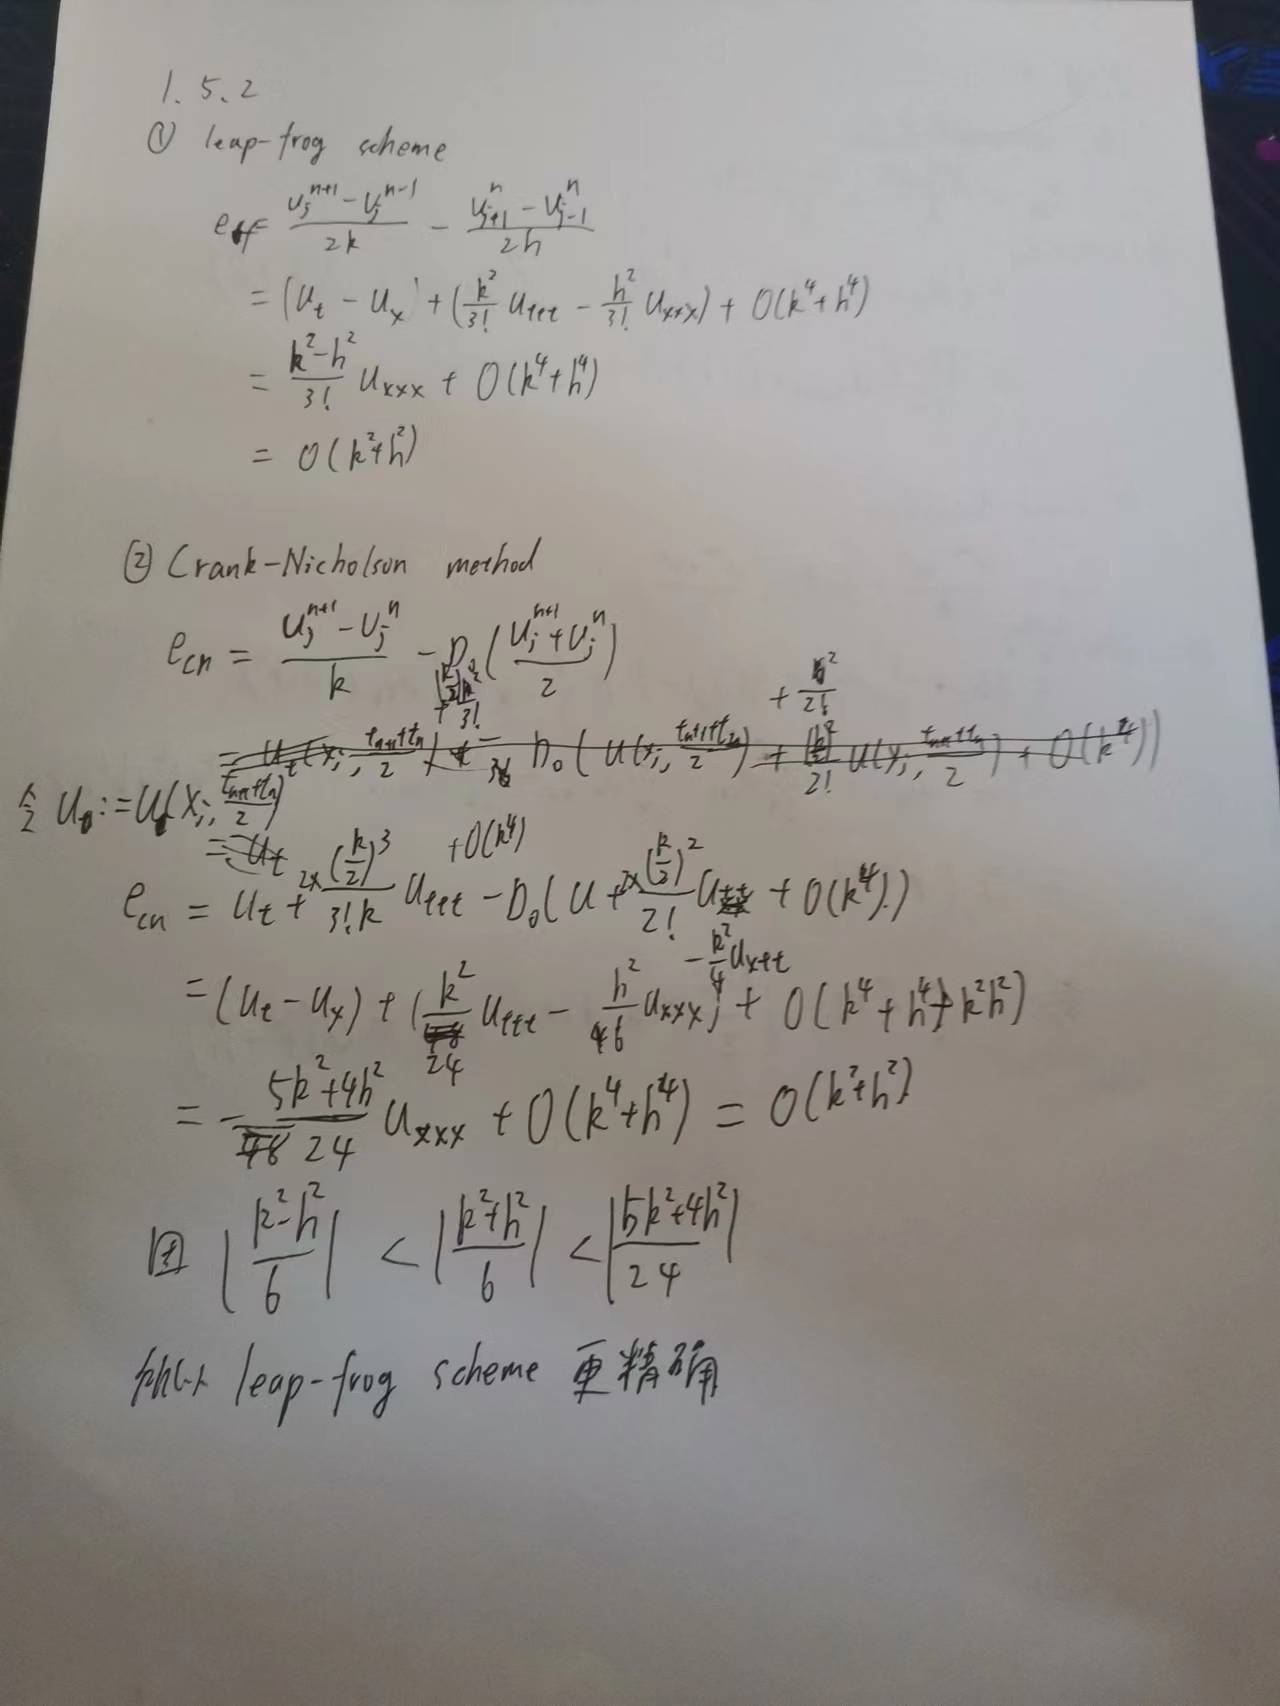 1.5.2
① leap-frog scheme
e_lf = (u_j^{n+1} - u_j^{n-1})/2k - (u_{j+1}^n - u_{j-1}^n)/2h
= (u_t - u_x) + (k²/3! u_ttt - h²/3! u_xxx) + O(k⁴+h⁴)
= (k²-h²)/3! u_xxx + O(k⁴+h⁴)
= O(k²+h²)
② Crank-Nicholson method
e_cn = (u_j^{n+1} - u_j^n)/k - D_0((u_j^{n+1} + u_j^n)/2)
令 u := u(x_j, (t_{n+1}+t_n)/2)
e_cn = u_t + 2×(k/2)³/(3!k) u_ttt + O(k⁴) - D_0(u + (k/2)²/2! u_tt + O(k⁴))
= (u_t - u_x) + (k²/24 u_ttt - h²/6 u_xxx - k²/4 u_xtt) + O(k⁴+h⁴+k²h²)
= - (5k²+4h²)/24 u_xxx + O(k⁴+h⁴) = O(k²+h²)
因 |(k²-h²)/6| < |(k²+h²)/6| < |(5k²+4h²)/24|
所以 leap-frog scheme 更精确